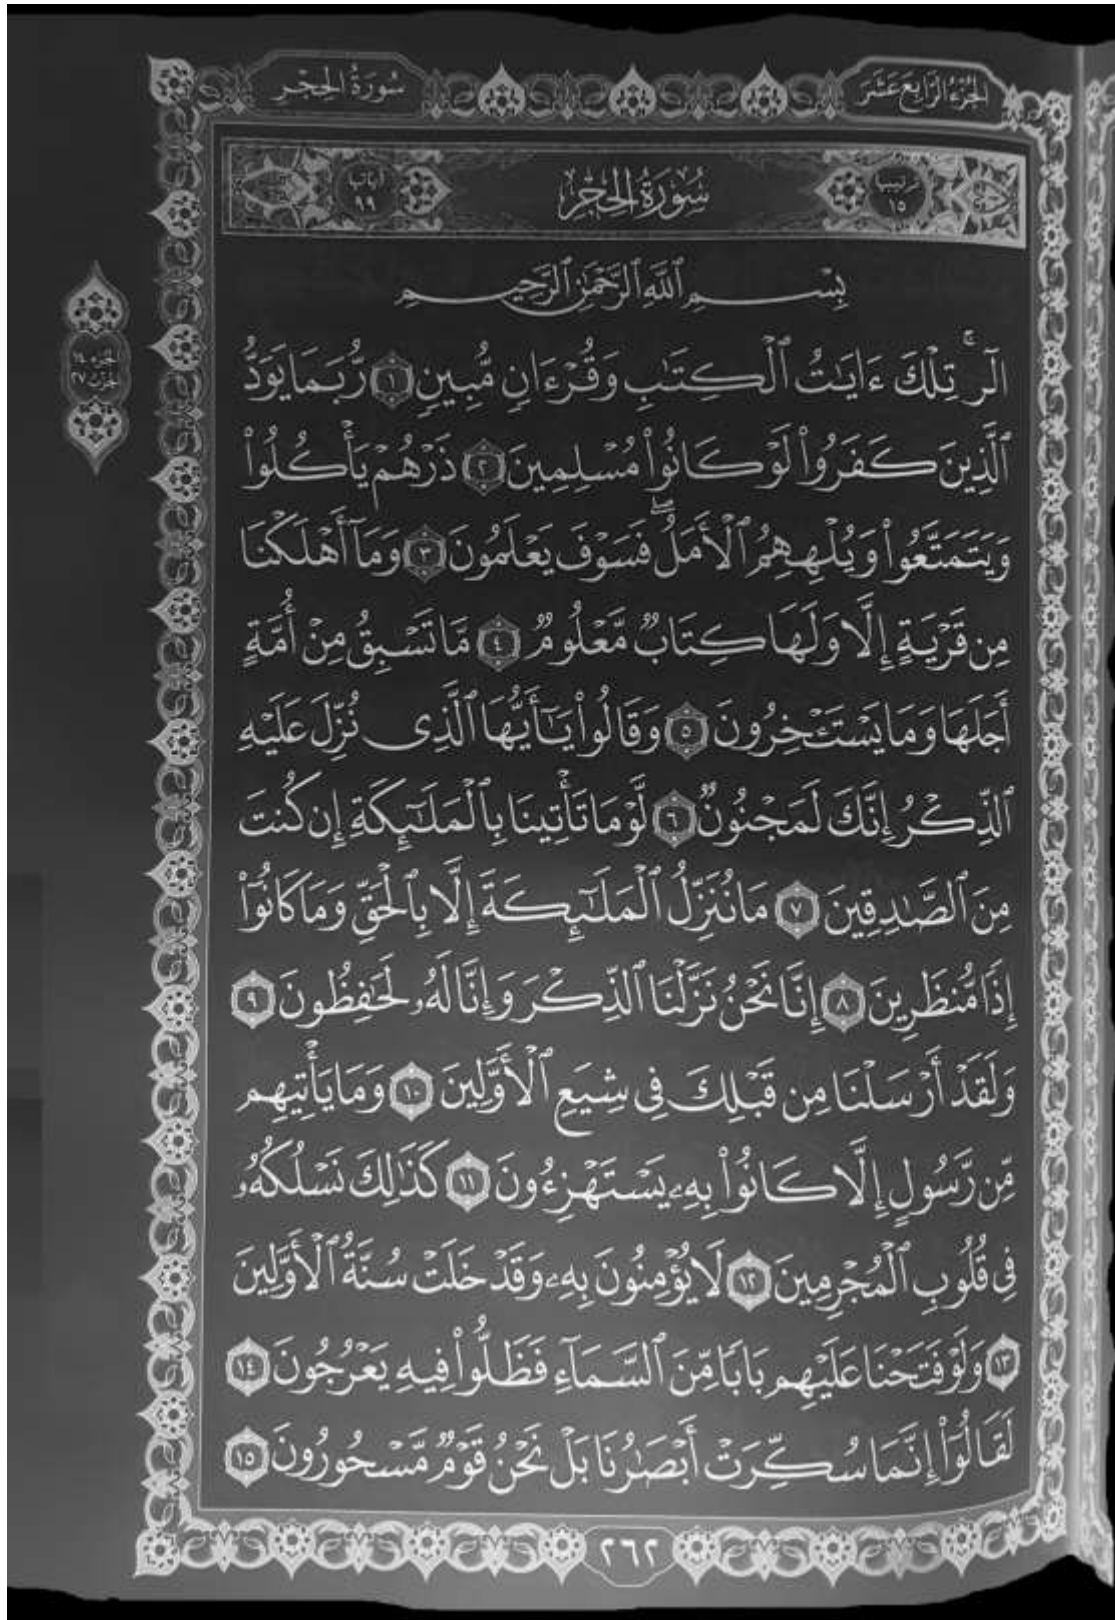 الجزء الرابع عشر
سورة الحجر
ترتيبها ١٥
سُورَةُ الحِجْرِ
آياتها ٩٩
بِسْمِ ٱللَّهِ ٱلرَّحْمَٰنِ ٱلرَّحِيمِ
الٓرۚ تِلْكَ ءَايَٰتُ ٱلْكِتَٰبِ وَقُرْءَانٍ مُّبِينٍ ١ رُّبَمَا يَوَدُّ
ٱلَّذِينَ كَفَرُوا۟ لَوْ كَانُوا۟ مُسْلِمِينَ ٢ ذَرْهُمْ يَأْكُلُوا۟
وَيَتَمَتَّعُوا۟ وَيُلْهِهِمُ ٱلْأَمَلُۖ فَسَوْفَ يَعْلَمُونَ ٣ وَمَآ أَهْلَكْنَا
مِن قَرْيَةٍ إِلَّا وَلَهَا كِتَابٌ مَّعْلُومٌ ٤ مَّا تَسْبِقُ مِنْ أُمَّةٍ
أَجَلَهَا وَمَا يَسْتَـْٔخِرُونَ ٥ وَقَالُوا۟ يَٰٓأَيُّهَا ٱلَّذِى نُزِّلَ عَلَيْهِ
ٱلذِّكْرُ إِنَّكَ لَمَجْنُونٌ ٦ لَّوْ مَا تَأْتِينَا بِٱلْمَلَٰٓئِكَةِ إِن كُنتَ
مِنَ ٱلصَّٰدِقِينَ ٧ مَا نُنَزِّلُ ٱلْمَلَٰٓئِكَةَ إِلَّا بِٱلْحَقِّ وَمَا كَانُوٓا۟
إِذًا مُّنظَرِينَ ٨ إِنَّا نَحْنُ نَزَّلْنَا ٱلذِّكْرَ وَإِنَّا لَهُۥ لَحَٰفِظُونَ ٩
وَلَقَدْ أَرْسَلْنَا مِن قَبْلِكَ فِى شِيَعِ ٱلْأَوَّلِينَ ١٠ وَمَا يَأْتِيهِم
مِّن رَّسُولٍ إِلَّا كَانُوا۟ بِهِۦ يَسْتَهْزِءُونَ ١١ كَذَٰلِكَ نَسْلُكُهُۥ
فِى قُلُوبِ ٱلْمُجْرِمِينَ ١٢ لَا يُؤْمِنُونَ بِهِۦ وَقَدْ خَلَتْ سُنَّةُ ٱلْأَوَّلِينَ
١٣ وَلَوْ فَتَحْنَا عَلَيْهِم بَابًا مِّنَ ٱلسَّمَآءِ فَظَلُّوا۟ فِيهِ يَعْرُجُونَ ١٤
لَقَالُوٓا۟ إِنَّمَا سُكِّرَتْ أَبْصَٰرُنَا بَلْ نَحْنُ قَوْمٌ مَّسْحُورُونَ ١٥
الجزء ١٤
الحزب ٢٧
٢٦٢